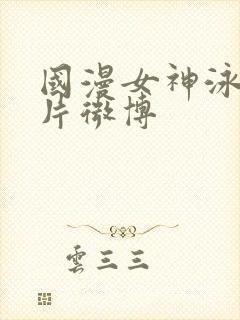 國漫女神泳
片微博
雲三三